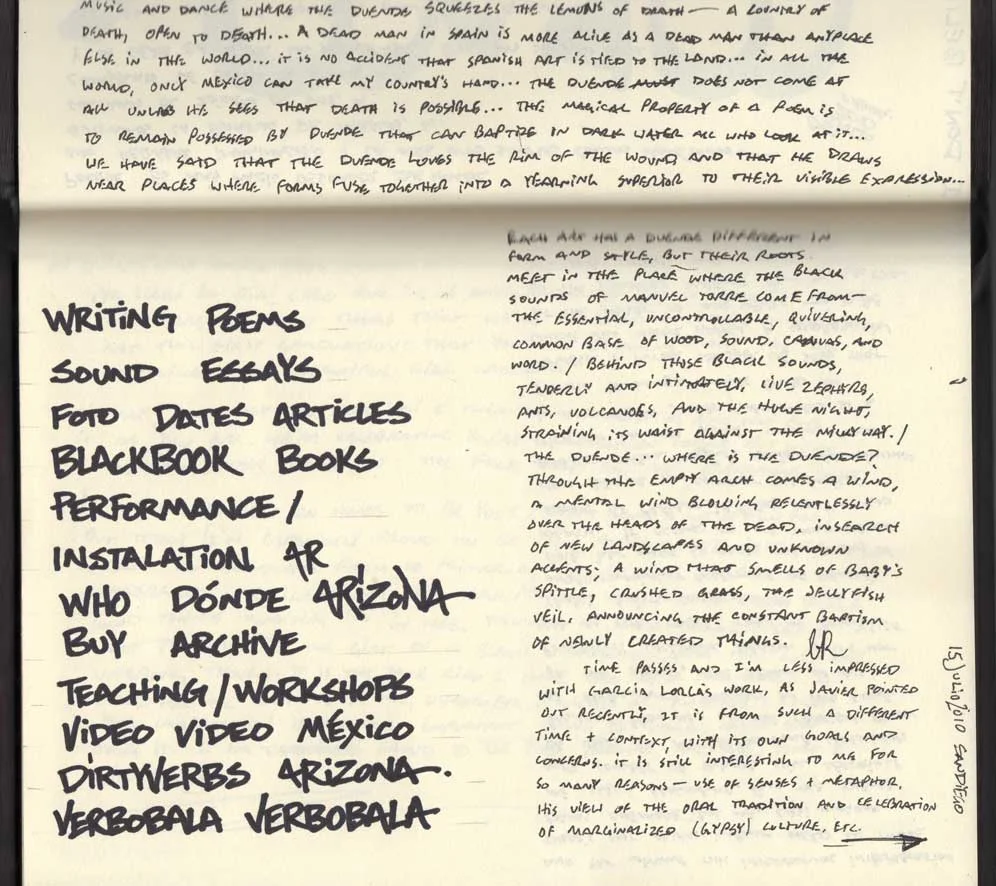 MUSIC AND DANCE WHERE THE DUENDE SQUEEZES THE LEMONS OF DEATH — A COUNTRY OF
DEATH, OPEN TO DEATH... A DEAD MAN IN SPAIN IS MORE ALIVE AS A DEAD MAN THAN ANYPLACE
ELSE IN THE WORLD... IT IS NO ACCIDENT THAT SPANISH ART IS TIED TO THE LAND... IN ALL THE
WORLD, ONLY MEXICO CAN TAKE MY COUNTRY'S HAND... THE DUENDE MUST DOES NOT COME AT
ALL UNLESS HE SEES THAT DEATH IS POSSIBLE... THE MAGICAL PROPERTY OF A POEM IS
TO REMAIN POSSESSED BY DUENDE THAT CAN BAPTIZE IN DARK WATER ALL WHO LOOK AT IT...
WE HAVE SAID THAT THE DUENDE LOVES THE RIM OF THE WOUND AND THAT HE DRAWS
NEAR PLACES WHERE FORMS FUSE TOGETHER INTO A YEARNING SUPERIOR TO THEIR VISIBLE EXPRESSION...
WRITING POEMS
SOUND ESSAYS
FOTO DATES ARTICLES
BLACKBOOK BOOKS
PERFORMANCE/
INSTALATION AR
WHO DÓNDE ARIZONA
BUY ARCHIVE
TEACHING/WORKSHOPS
VIDEO VIDEO MÉXICO
DIRTYVERBS ARIZONA.
VERBOBALA VERBOBALA
EACH ART HAS A DUENDE DIFFERENT IN
FORM AND STYLE, BUT THEIR ROOTS
MEET IN THE PLACE WHERE THE BLACK
SOUNDS OF MANUEL TORRE COME FROM—
THE ESSENTIAL, UNCONTROLLABLE, QUIVERING,
COMMON BASE OF WOOD, SOUND, CANVAS, AND
WORD. / BEHIND THOSE BLACK SOUNDS,
TENDERLY AND INTIMATELY, LIVE ZEPHYRS,
ANTS, VOLCANOES, AND THE HUGE NIGHT,
STRAINING ITS WAIST AGAINST THE MILKY WAY. /
THE DUENDE... WHERE IS THE DUENDE?
THROUGH THE EMPTY ARCH COMES A WIND,
A MENTAL WIND BLOWING RELENTLESSLY
OVER THE HEADS OF THE DEAD, IN SEARCH
OF NEW LANDSCAPES AND UNKNOWN
ACCENTS; A WIND THAT SMELLS OF BABY'S
SPITTLE, CRUSHED GRASS, THE JELLYFISH
VEIL, ANNOUNCING THE CONSTANT BAPTISM
OF NEWLY CREATED THINGS.
TIME PASSES AND I'M LESS IMPRESSED
WITH GARCÍA LORCA'S WORK, AS JAVIER POINTED
OUT RECENTLY, IT IS FROM SUCH A DIFFERENT
TIME + CONTEXT, WITH ITS OWN GOALS AND
CONCERNS. IT IS STILL INTERESTING TO ME FOR
SO MANY REASONS — USE OF SENSES + METAPHOR,
HIS VIEW OF THE ORAL TRADITION AND CELEBRATION
OF MARGINALIZED (GYPSY) CULTURE, ETC.
15 JULIO 2010 SAN DIEGO